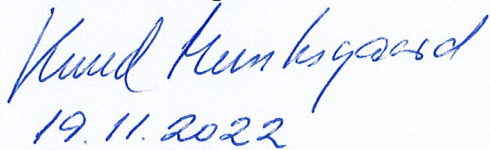 Knud Munksgaard
19.11.2022